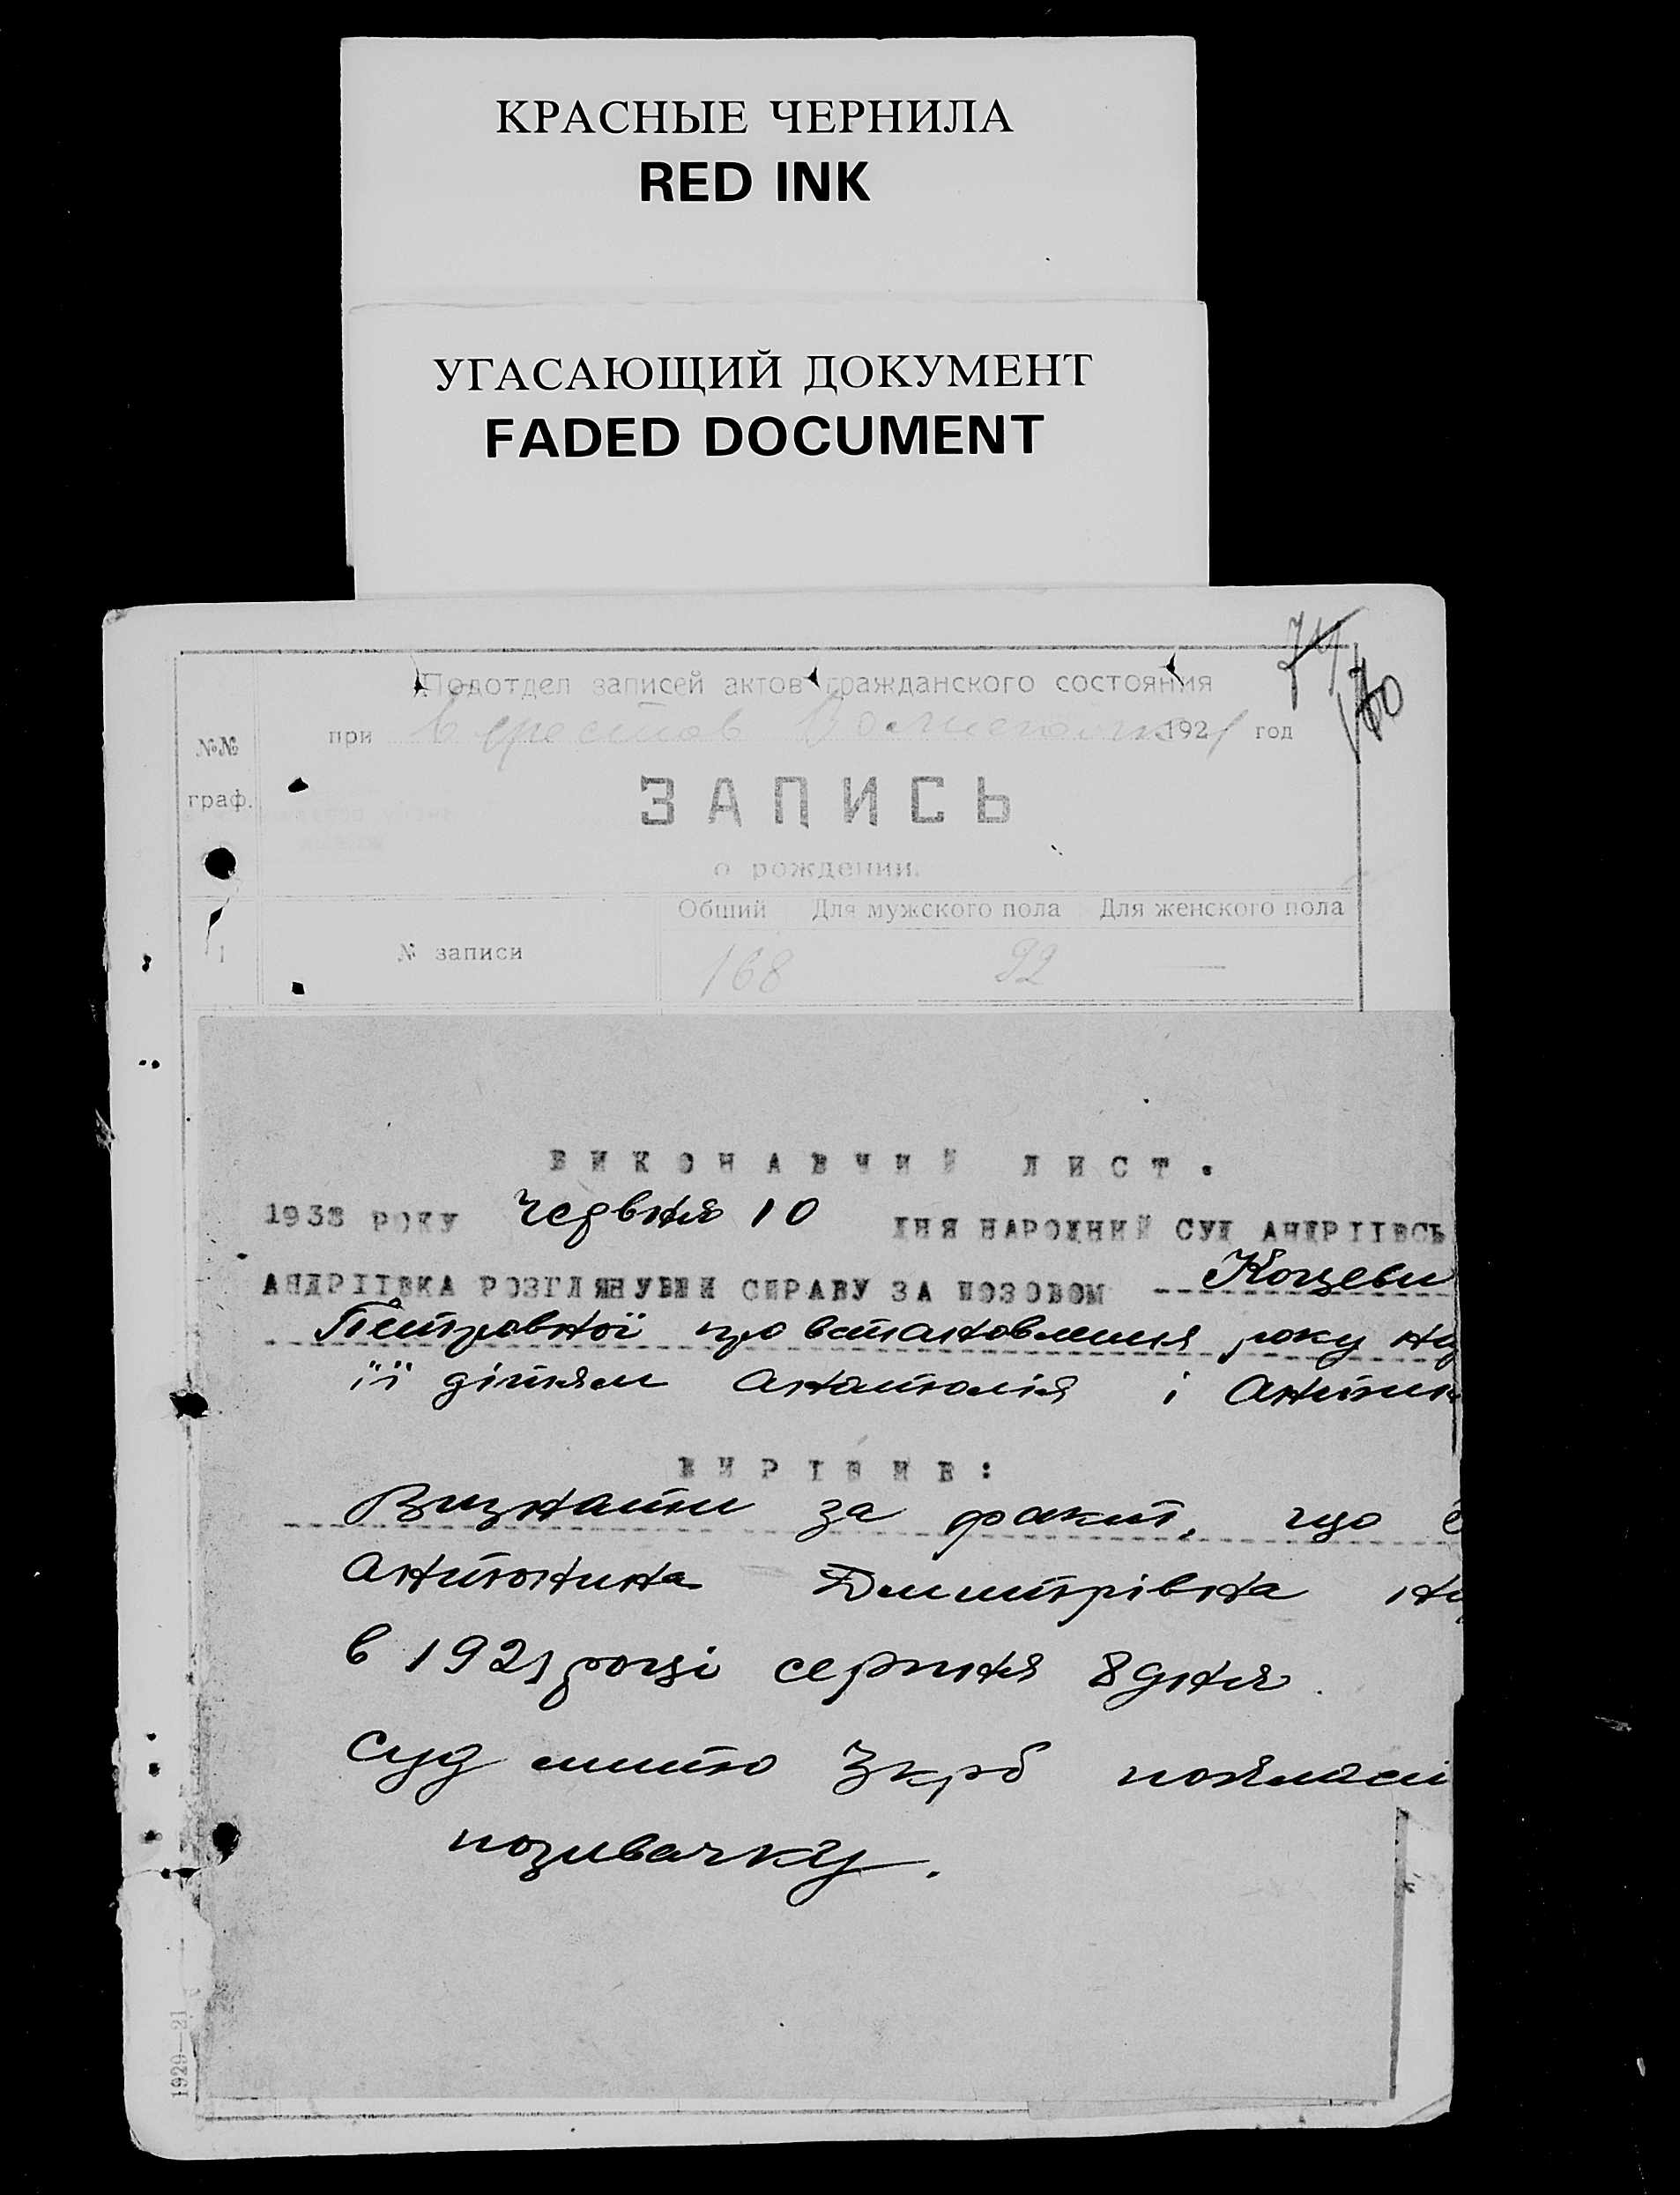 КРАСНЫЕ ЧЕРНИЛА
RED INK
УГАСАЮЩИЙ ДОКУМЕНТ
FADED DOCUMENT
74
180
Подотдел записей актов гражданского состояния
при Верестов 1921 год
№№
граф.
ЗАПИСЬ
о рождении.
Общий Для мужского пола Для женского пола
1 № записи 168 92 —
ВИКОНАВЧИЙ ЛИСТ.
1938 РОКУ червня 10 ДНЯ НАРОДНИЙ СУД АНДРІІВСЬ
АНДРІІВКА РОЗГЛЯНУВШИ СПРАВУ ЗА ПОЗОВОМ Коцеви
Петровної про встановлення року на
її дітям Анатолія і Антон
ВИРІШИВ:
Визнати за факт, що
Антонина Дмитрівна на
в 1921 році серпня 8 дня.
Суд мито 3 крб покласі
позивачку.
1920—21